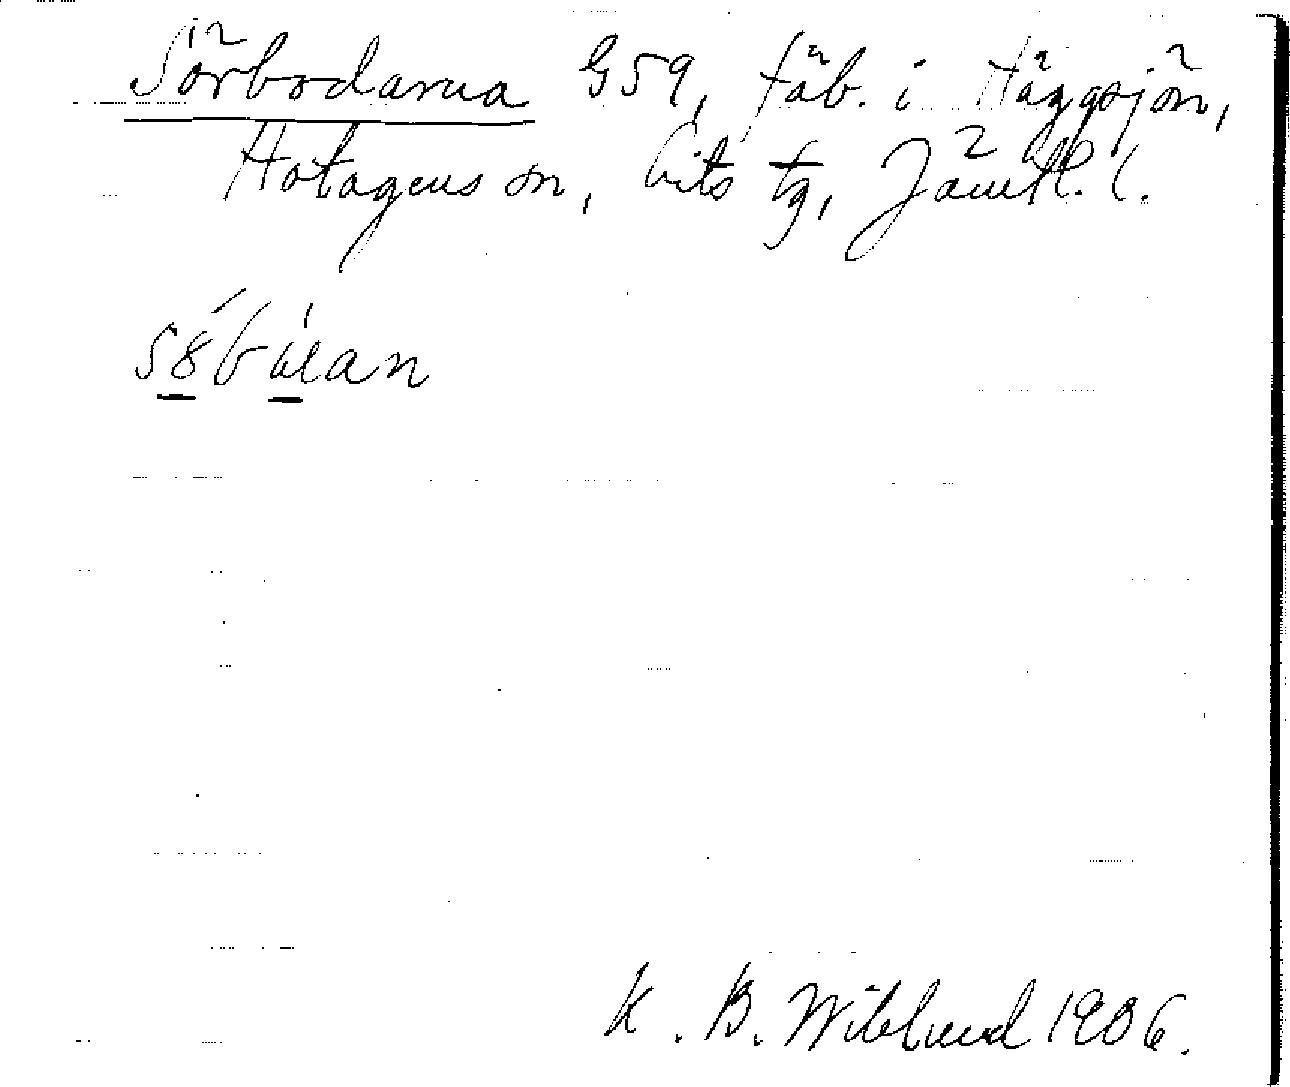 Sörbodarna G59, fäb. i Häggsjön,
Hotagens sn, Lits tg, Jämtl. l.
K. B. Wiklund 1906.